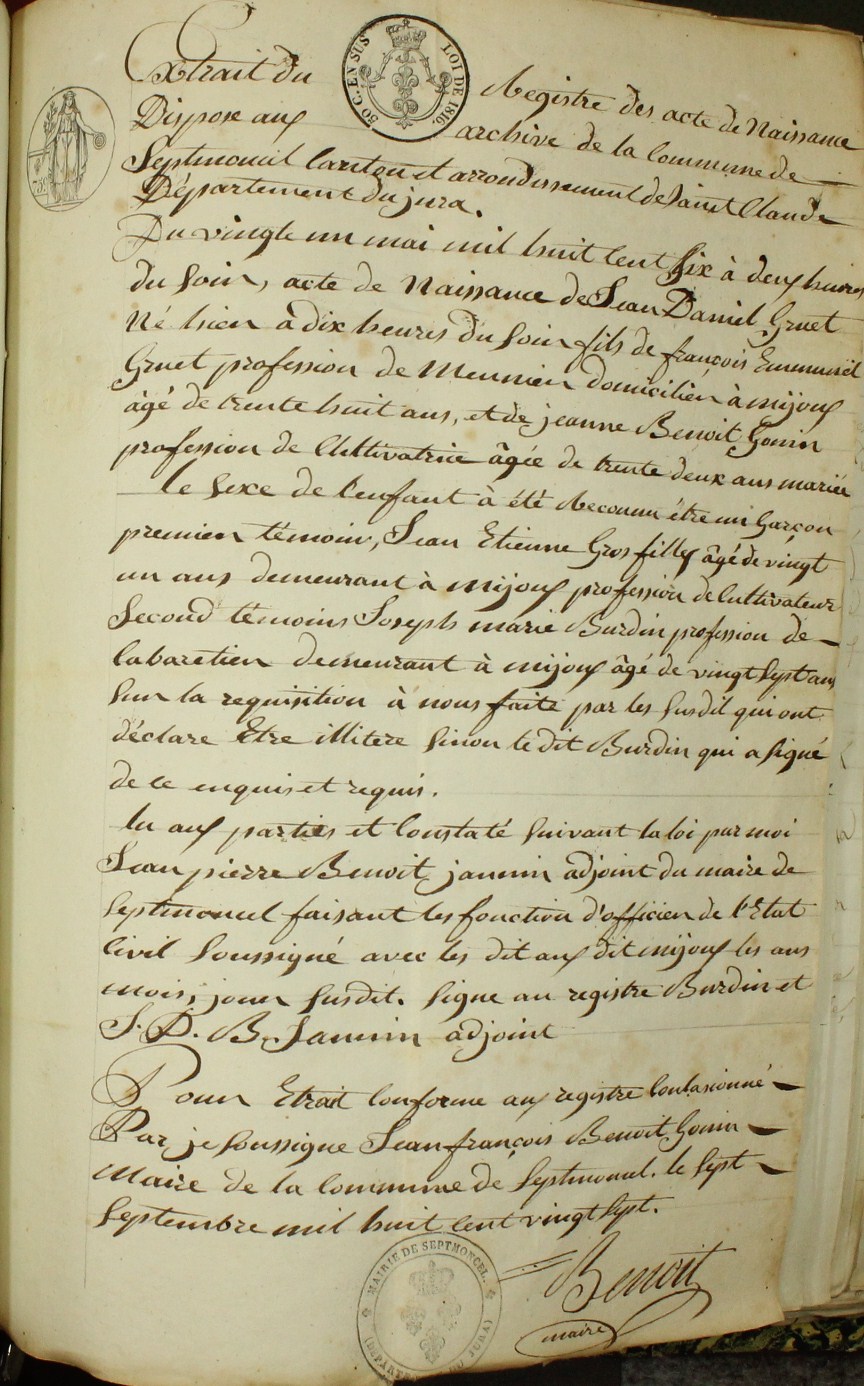 50 C. EN SUS
LOI DE 1816
Extrait du Registre des acte de Naissance
Dispose aux archive de la Commune de
Septmoncel Canton et arrondissement de Saint Claude
Département du jura.
Du vingte un mai mil huit Cent Six à deux heures
du Soir, acte de Naissance de Jean Daniel Gruet
Né hier à dix heures du Soir fils de françois Emmanuel
Gruet profession de Meunier domicilier à mijoux
âgé de trente huit ans, et de jeanne Benoit Gonin
profession de Cultivatrice âgée de trente deux ans mariés
le Sexe de l'enfant à été Reconnu être un Garçon
premier témoin, Jean Etienne Grosfilley âgé de vingt
un ans demeurant à mijoux profession de Cultivateur
Second témoins Joseph marie Burdin profession de
Cabaretier demeurant à mijoux âgé de vingt Sept ans
Sur la requisition à nous faite par les Susdit qui ont
déclare Etre illitere Sinon le dit Burdin qui a Signé
de ce enquis et requis.
lu aux parties et Constaté Suivant la loi par moi
Jean pierre Benoit jannin adjoint du maire de
Septmoncel faisant les fonction d'officier de l'Etat
Civil Soussigné avec les dit aux dit mijoux les ans
mois, jour Susdit. Signe au registre Burdin et
J. D. B. Jannin adjoint
Pour Etrait Conforme aux registre Contasionné
Par je Soussigne Jean françois Benoit Gonin
Maire de la Commune de Septmoncel. le Sept
Septembre mil huit Cent vingt Sept.
Benoit
maire
MAIRIE DE SEPTMONCEL.
(DÉPARTEMENT DU JURA)